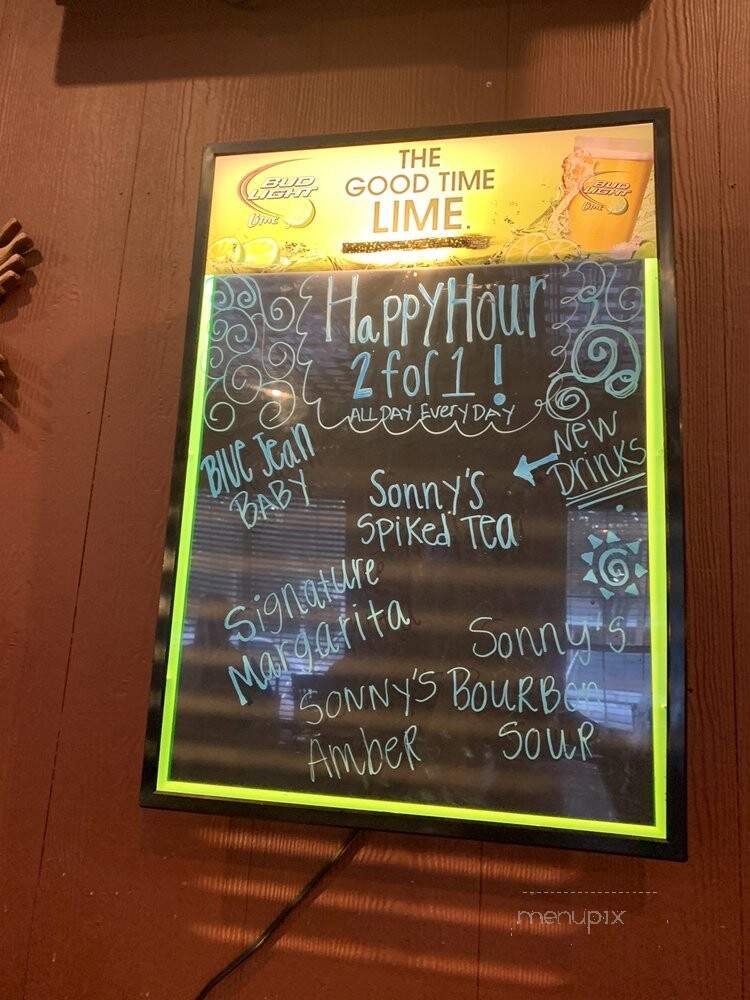 BUD
LIGHT
Lime
THE
GOOD TIME
LIME.
BUD
LIGHT
Lime
HappyHour
2 for 1!
ALL DAY EVERY DAY
NEW
Drinks
Blue Jean
BABY
Sonny's
Spiked Tea
Signature
Margarita
Sonny's
Bourbon
Sour
SONNY'S
AmbeR
menupix